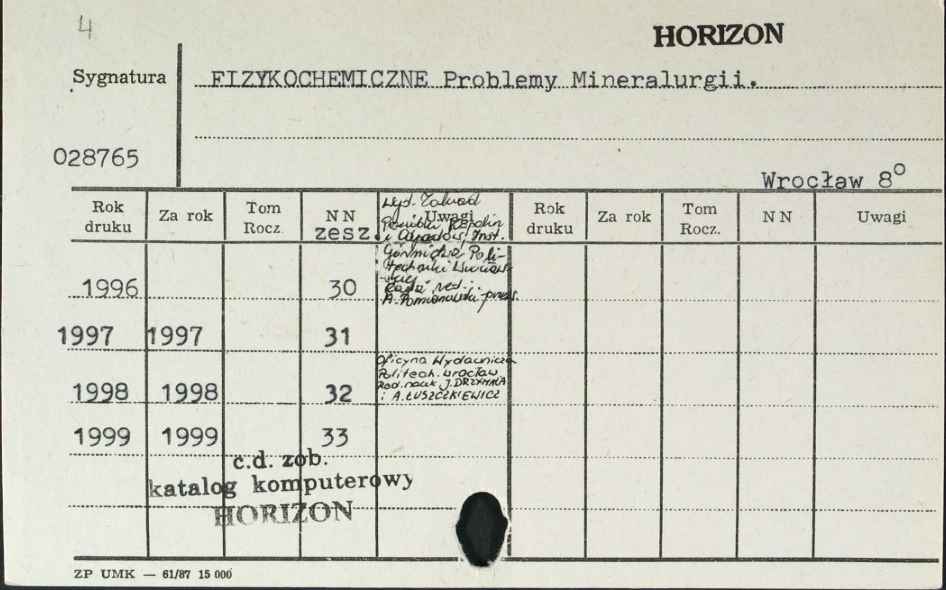 4
HORIZON
Sygnatura FIZYKOCHEMICZNE Problemy Mineralurgii.
028765
Wrocław 8°
Rok druku Za rok Tom Rocz. NN zesz. Uwagi Rok druku Za rok Tom Rocz. NN Uwagi
Wyd. Zakład
i Odpadów, Inst.
Górnictwa Poli-
techniki Wrocław-
skiej
Rada red.:
1996 30
1997 1997 31
Oficyna Wydawnicza
Politech. Wrocław
Red. nauk. J. DRZYMAŁA
i A. ŁUSZCZKIEWICZ
1998 1998 32
1999 1999 33
c.d. zob.
katalog komputerowy
HORIZON
ZP UMK — 61/87 15 000